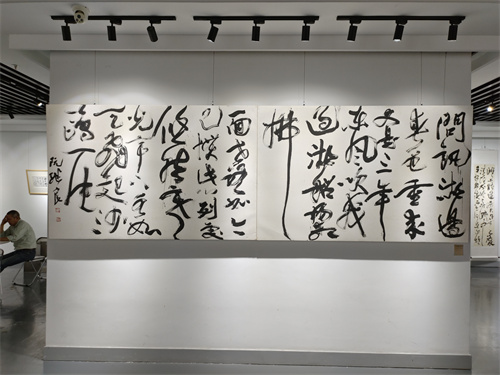 問訊湖邊
春色重来
又是三年
东風吹我
過湖船楊柳絲絲
拂
面世路如今
已慣此心到處
悠然寒
光亭下水如
天飛起沙
鷗一片